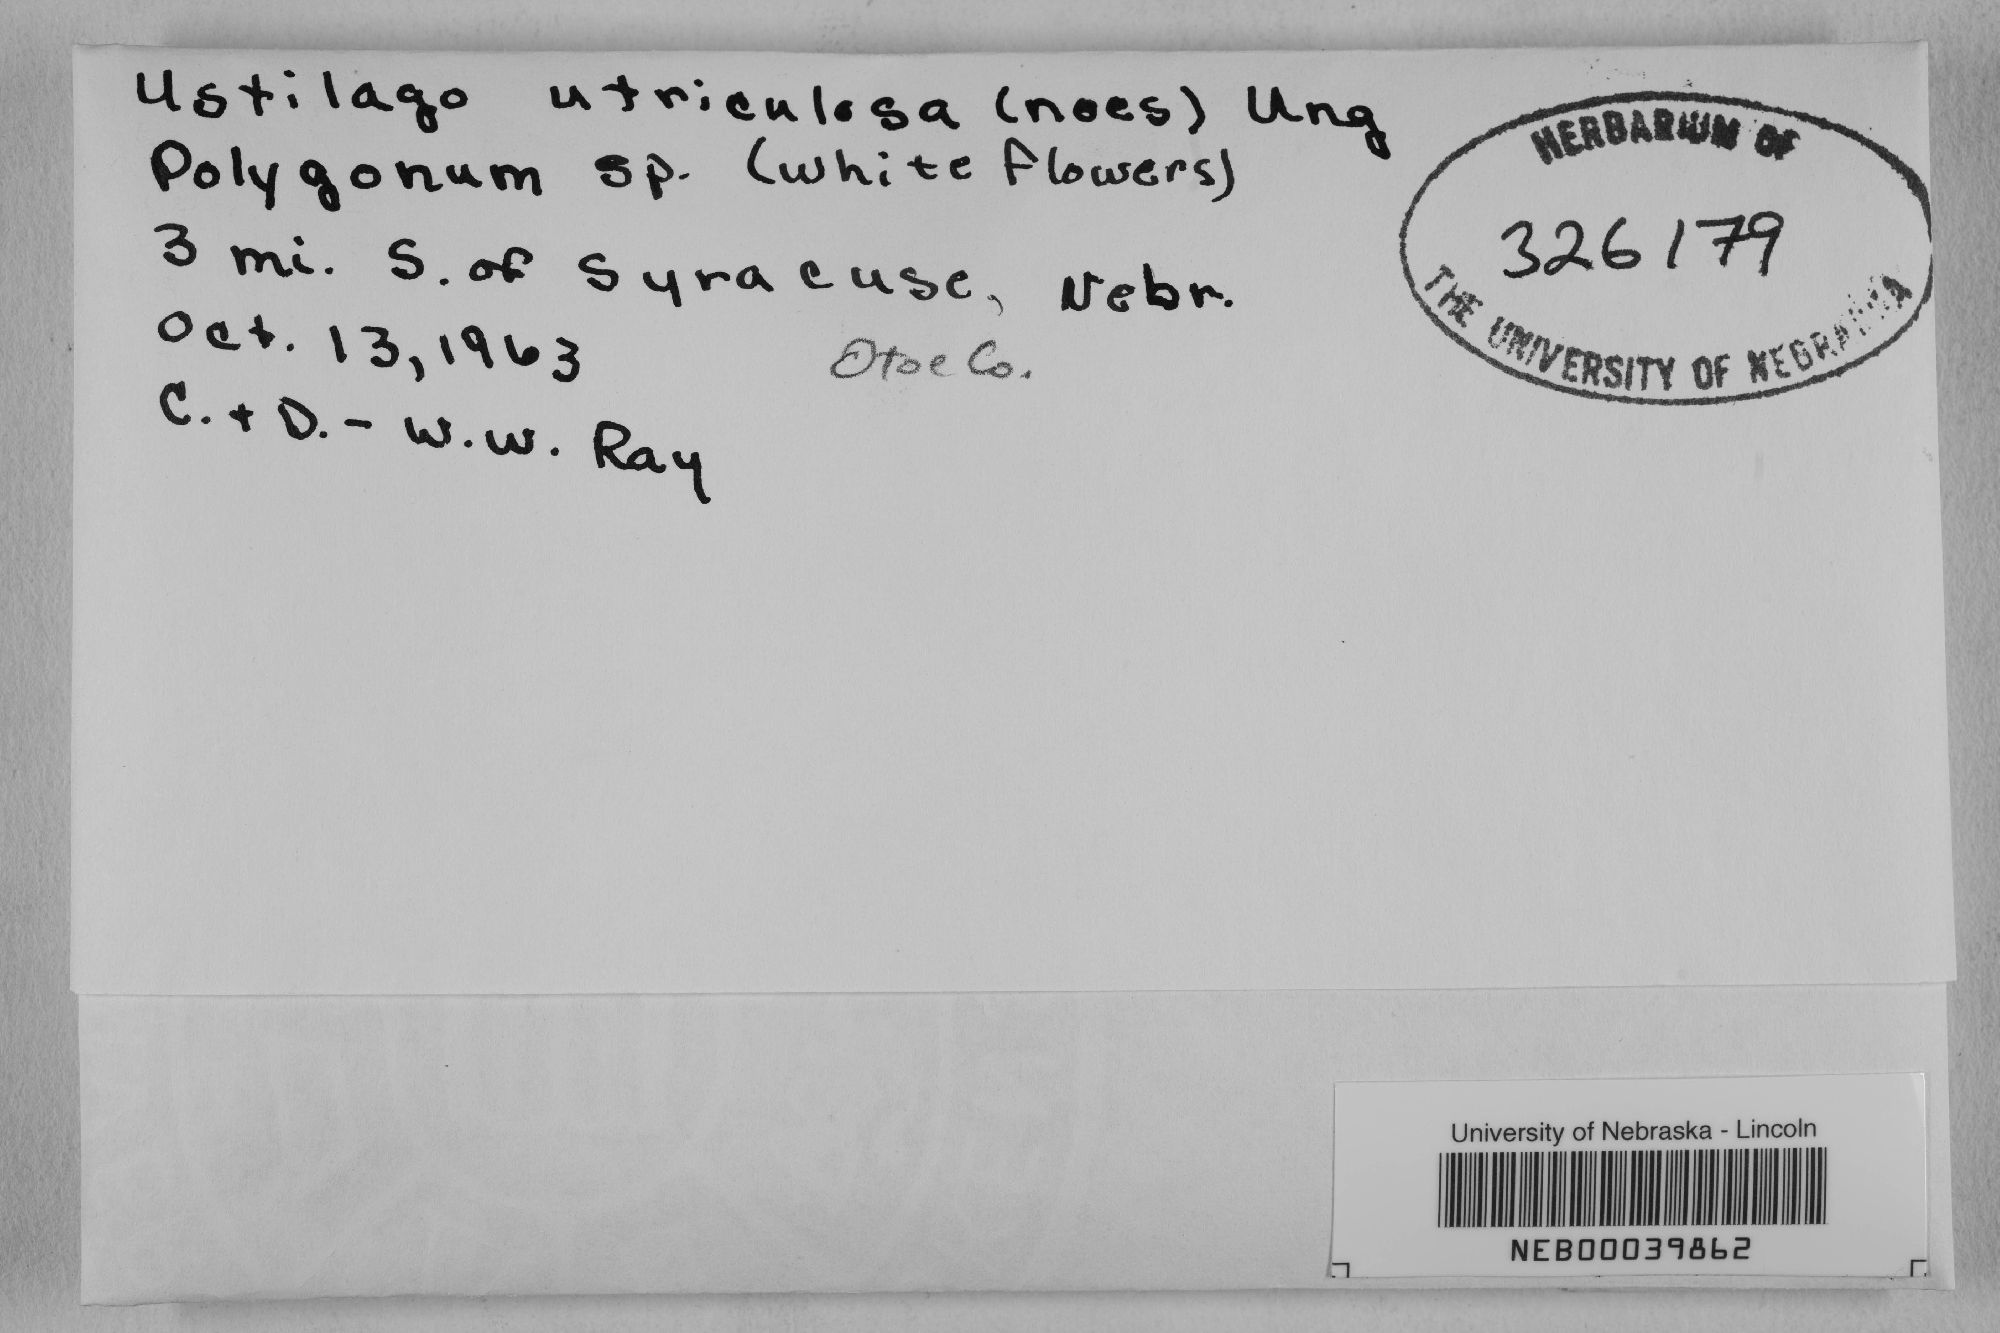 Ustilago utriculosa (nees) Ung
Polygonum sp. (white flowers)
3 mi. S. of Syracuse, Nebr.
Oct. 13, 1963
Otoe Co.
C. + D. - W. W. Ray
HERBARIUM OF
326179
THE UNIVERSITY OF NEBRASKA
University of Nebraska - Lincoln
NEB00039862